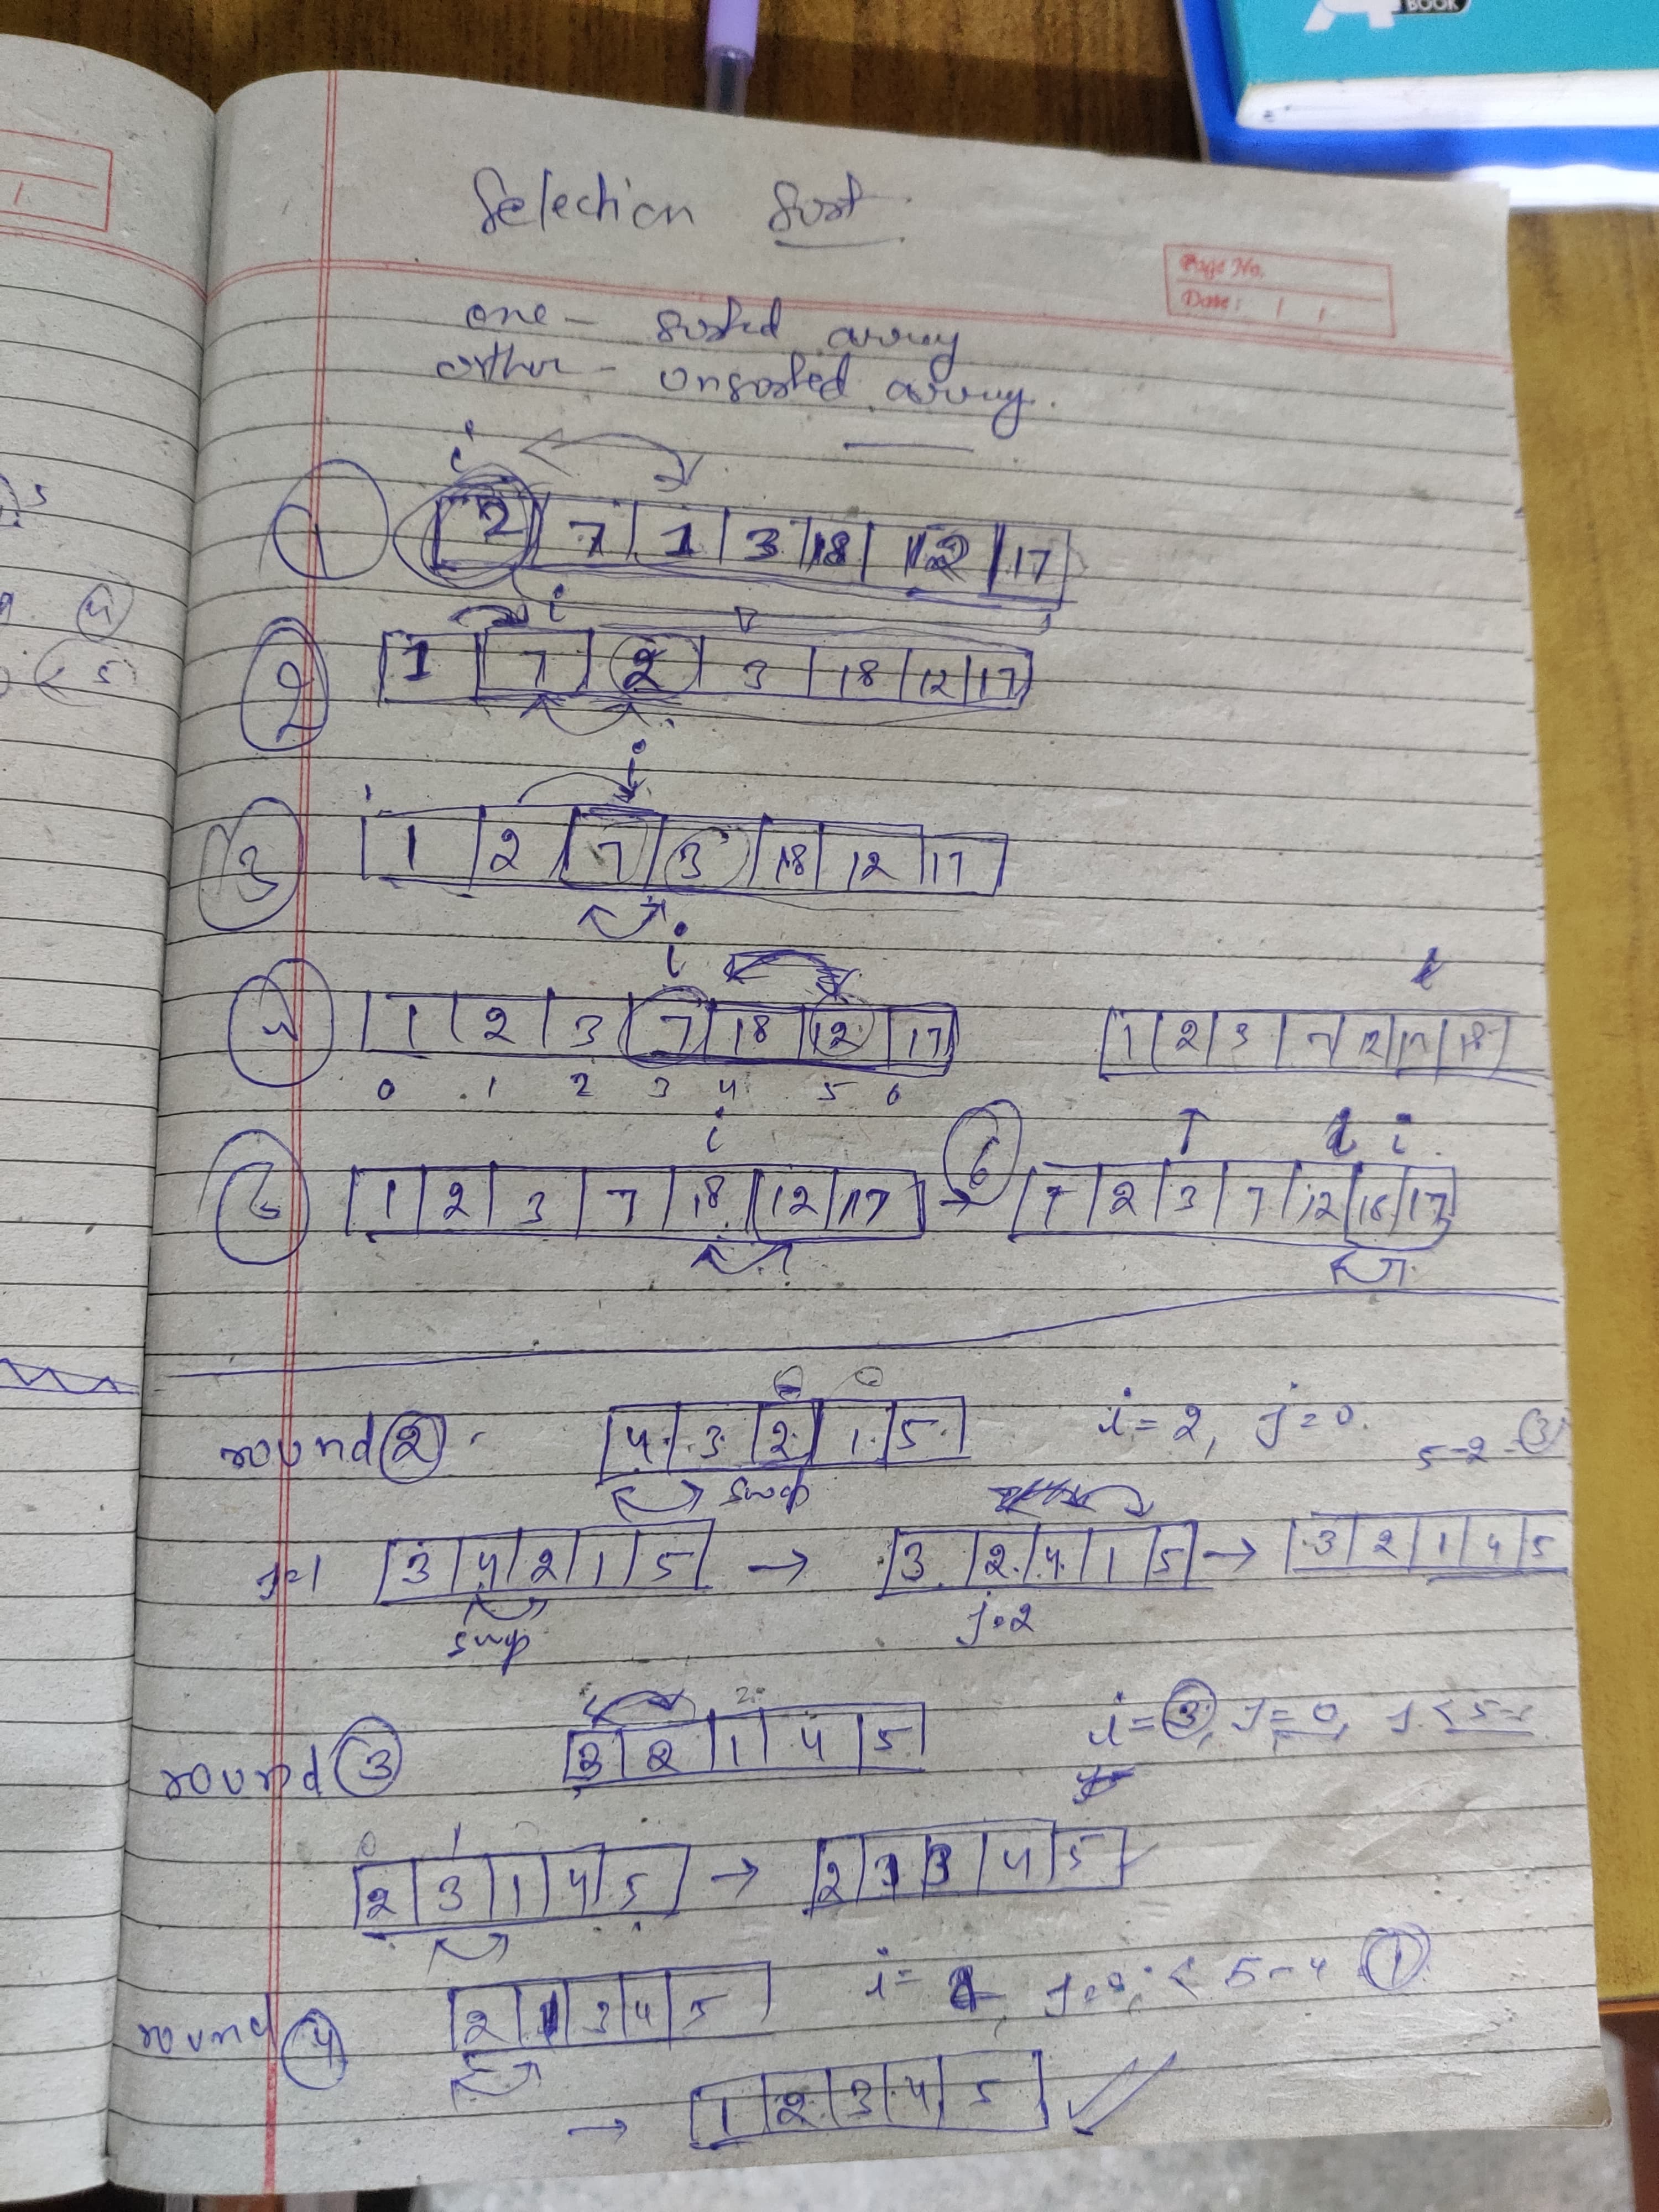 BOOK
Selection Sort
Page No.
Date: / /
one - sorted array
other - unsorted array.
i
1 2 7 1 3 18 12 17
i
2 1 7 2 3 18 12 17
i
3 1 2 7 3 18 12 17
i
4 1 2 3 7 18 12 17
0 1 2 3 4 5 6
1 2 3 7 12 17 18
i
1 2 3 7 18 12 17 →
i
6 1 2 3 7 12 18 17
round 2 4 3 2 1 5 i = 2, j = 0.
5-2 = 3
swap
j=1 3 4 2 1 5 → 3 2 4 1 5 → 3 2 1 4 5
swap
j=2
round 3 3 2 1 4 5 i = 3, j = 0,
0 1
2 3 1 4 5 → 2 1 3 4 5
round 4 2 1 3 4 5 < 5-4 1
→ 1 2 3 4 5